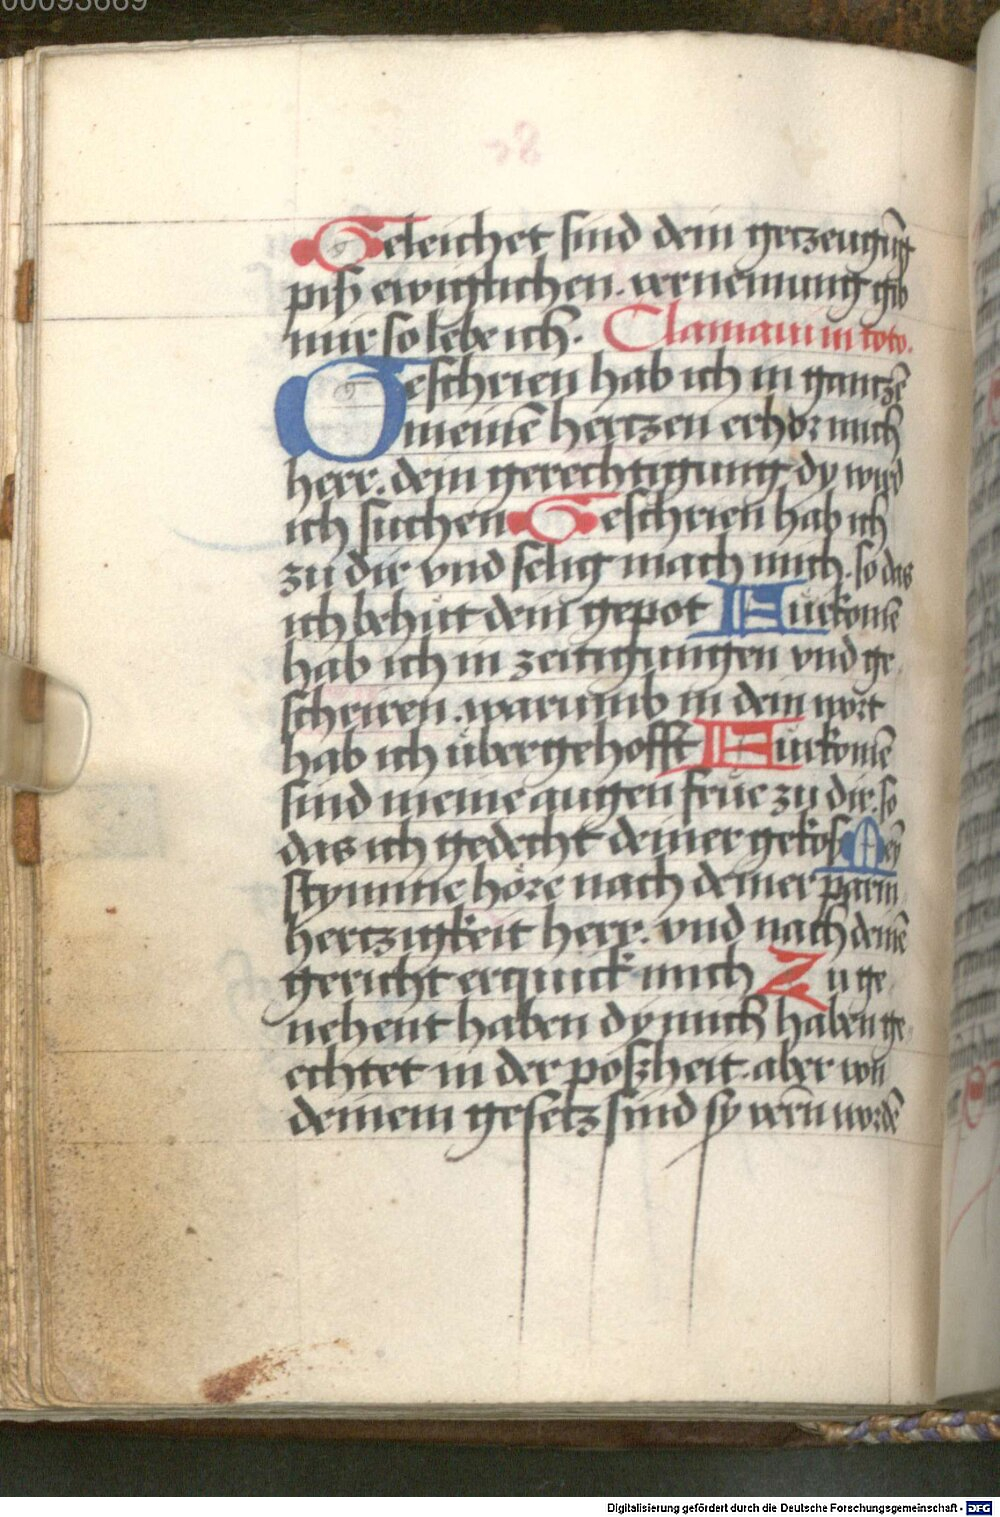 00093669
Geleichet sind dein getzeugũg
piß ewiglichen. vernemung gib
mir so lebe ich. Clamaui in toto.
Geschrien hab ich in gantzē
meinē hertzen erhör mich
herr. dein gerechtigung dy wird
ich suchen Geschrien hab ich
zu dir vnd selig mach mich. so das
ich behüt dein gepot Fürkomē
hab ich in zeitigungen vnd ge
schriren. warumb in dein wort
hab ich über gehofft Fürkomē
sind meine augen frue zu dir. so
das ich gedecht deiner gekos Mey
stymme höre nach deiner parm
hertzigkeit herr. vnd nach deinē
gericht erquick mich Zu ge
nehent haben dy mich haben ge
echtet in der poßheit. aber von
deinem gesetz sind sy verñ wordē
Digitalisierung gefördert durch die Deutsche Forschungsgemeinschaft - DFG